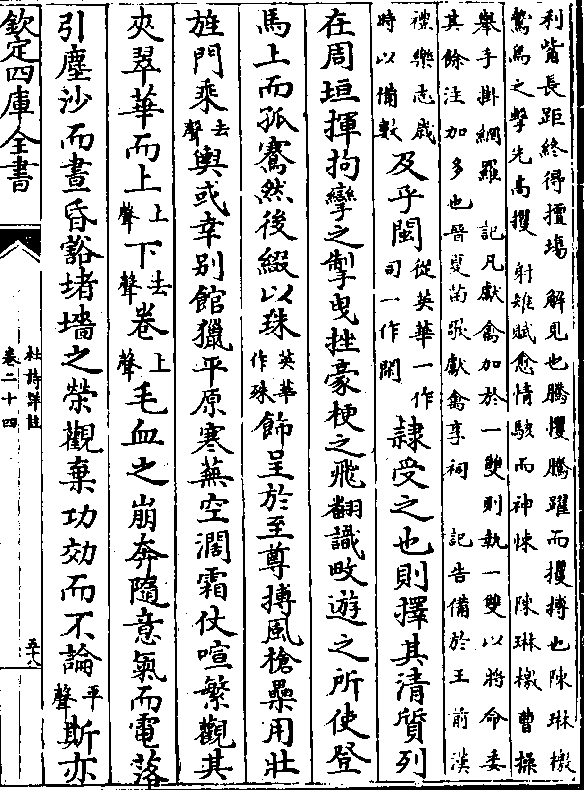 利觜長距終得擅場　解見也騰攫騰躍而攫搏也陳琳檄
鷙鳥之擊先高攫　射雉賦愈情駭而神悚　陳琳檄曹操
舉手掛網羅　記凡獻禽加於一雙則執一雙以將命委
其餘注加多也晉夏苗張獻禽享祠　記告備於王前漢
禮樂志歲
時以備數
及乎閩
從英華一作
司一作閞
隸受之也則擇其清質列
在周垣揮拘攣之掣曳挫豪梗之飛翻識畋遊之所使登
馬上而孤騫然後綴以珠
英華
作殊
飾呈於至尊搏風槍櫐用壯
旌門乘
去
聲
輿或幸别館獵平原寒蕪空濶霜仗喧繁觀其
夾翠華而上
上
聲
下
去
聲
卷
上
聲
毛血之崩奔隨意氣而電落
引塵沙而晝昏豁堵墻之榮觀棄功効而不論
平
聲
斯亦
欽定四庫全書
杜詩詳註
卷二十四
五十八